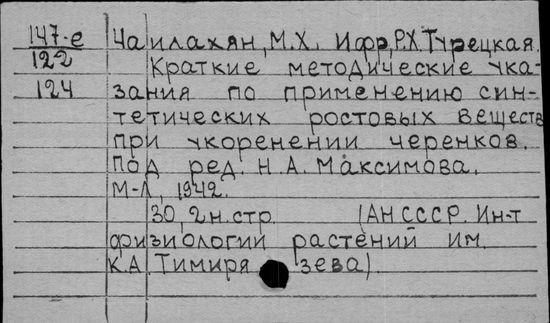 147-е Чайлахян, М.Х. и Р.Х. Турецкая.
122 Краткие методические ука-
124 зания по применению син-
тетических ростовых веществ
при укоренении черенков.
Под ред. Н.А. Максимова.
М-Л, 1942.
30, 2 н. стр. (АН СССР. Ин-т
физиологии растений им.
К.А. Тимирязева).